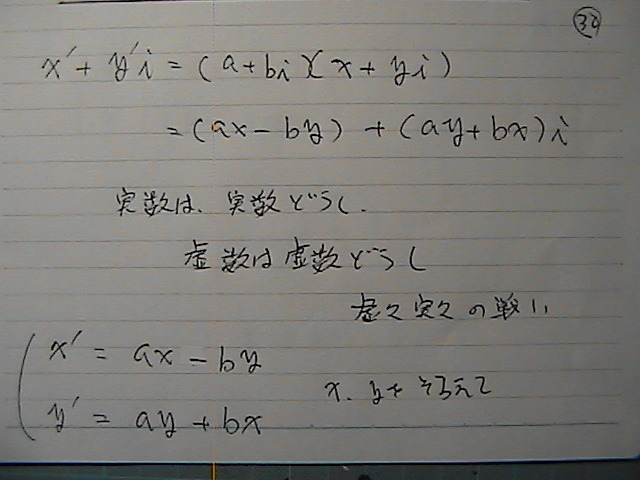 39
x′ + y′i = (a + bi)(x + yi)
= (ax − by) + (ay + bx)i
実数は、実数どうし.
虚数は虚数どうし
虚々実々の戦い
x′ = ax − by
x、yを そろえて
y′ = ay + bx